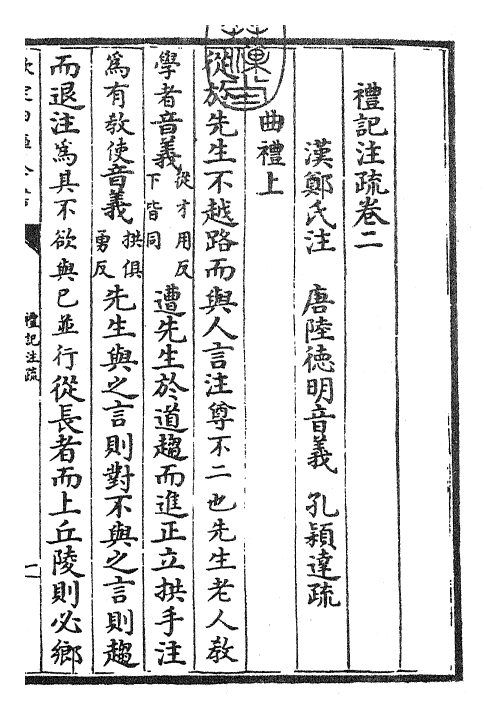 禮記注疏卷二
漢鄭氏注　唐陸徳明音義　孔穎達疏
曲禮上
從於先生不越路而與人言注尊不二也先生老人教
學者音義從才用反下皆同遭先生於道趨而進正立拱手注
為有教使音義拱俱勇反先生與之言則對不與之言則趨
而退注為其不欲與已並行從長者而上丘陵則必鄉
禮記注疏